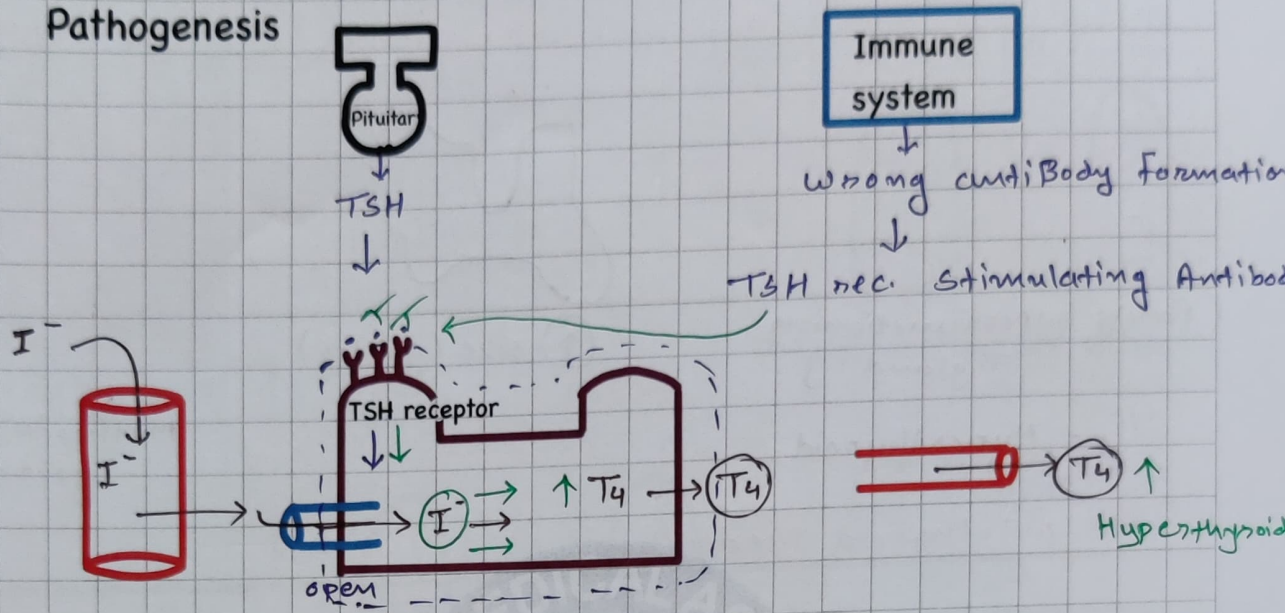 Pathogenesis
Pituitar
TSH
Immune
system
Wrong antiBody Formatio
TSH rec. Stimulating Antibod
I⁻
I⁻
TSH receptor
open
I⁻
↑ T4
T4
T4 ↑
Hyperthyroid